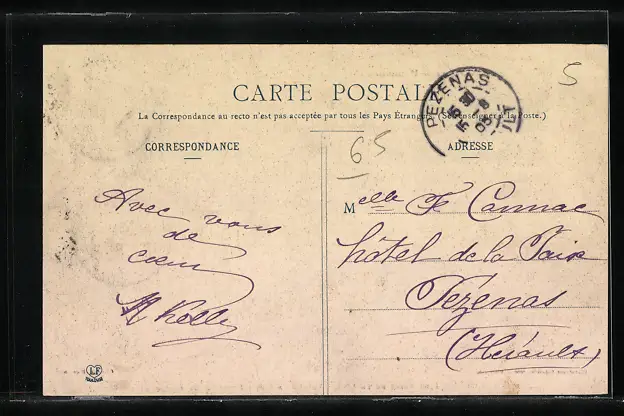 CARTE POSTALE
La Correspondance au recto n'est pas acceptée par tous les Pays Étrangers (Se renseigner à la Poste.)
CORRESPONDANCE
ADRESSE
PEZENAS
5
65
Avec vous
de
cœur
Kelly
Melle F. Cannac
hôtel de la Paix
Pézenas
(Hérault)
LF